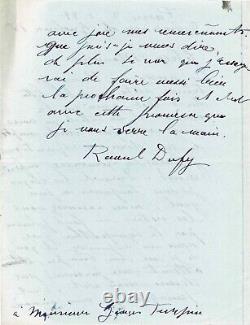 avec joie mes remerciements
que puis-je vous dire
de plus si non que j'essaye
rai de faire aussi bien
la prochaine fois et c'est
avec cette promesse que
je vous serre la main.
Raoul Dufy
à Monsieur Georges Turpin